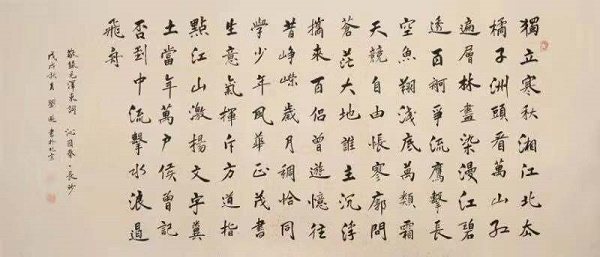 獨立寒秋湘江北去
橘子洲頭看萬山紅
遍層林盡染漫江碧
透百舸爭流鷹擊長
空魚翔淺底萬類霜
天競自由悵寥廓問
蒼茫大地誰主沉浮
攜來百侶曾遊憶往
昔崢嶸歲月稠恰同
學少年風華正茂書
生意氣揮斥方遒指
點江山激揚文字糞
土當年萬戶侯曾記
否到中流擊水浪遏
飛舟
敬錄毛澤東詞 沁園春·長沙
戊戌秋月 劉 書於北京